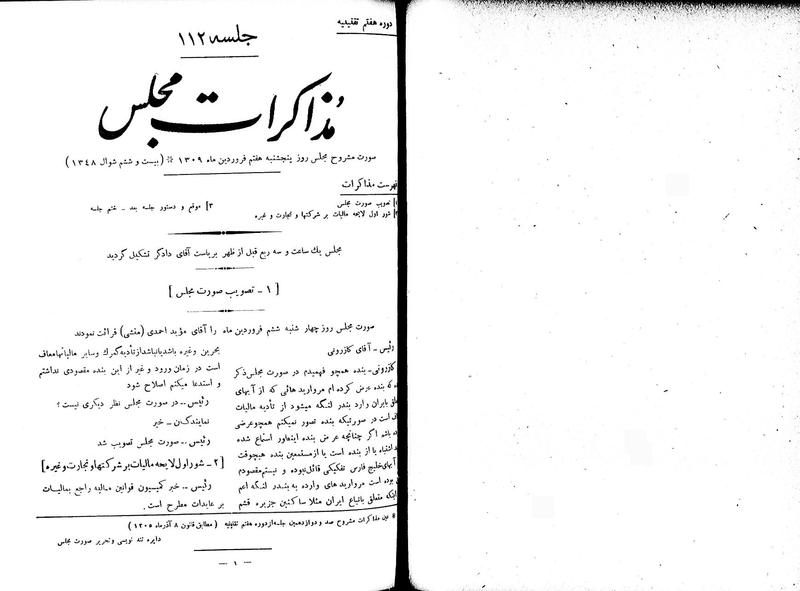 دوره هفتم تقنینیه
جلسه ۱۱۲
مذاکرات مجلس
صورت مشروح مجلس روز پنجشنبه هفتم فروردین ماه ۱۳۰۹ * (بیست و ششم شوال ۱۳٤۸)
فهرست مذاکرات
۱] تصویب صورت مجلس
۲] شور اول لایحه مالیات بر شرکتها و تجارت و غیره
۳] موقع و دستور جلسه بعد ـ ختم جلسه
مجلس یك ساعت و سه ربع قبل از ظهر بریاست آقای دادگر تشکیل گردید
[ ۱ ـ تصویب صورت مجلس ]
صورت مجلس روز چهار شنبه ششم فروردین ماه را آقای مؤید احمدی (منشی) قرائت نمودند
رئیس ـ آقای کازرونی
کازرونی ـ بنده همچو فهمیدم در صورت مجلس ذکر
که بنده عرض کرده ام مروارید هائی که از آبهای
بایران وارد بندر لنگه میشود از تأدیه مالیات
است در صورتیکه بنده تصور نمیکنم همچو عرضی
باشم اگر چنانچه عرض بنده اینطور استماع شده
اشتباه یا از بنده است یا از مستمعین بنده هیچوقت
آبهای خلیج فارس تفکیکی قائل نبوده و نیستم مقصودم
بوده است مرواریدهای وارده به بندر لنگه اعم
اینکه متعلق باتباع ایران مثلا ساکنین جزیره قشم
بحرین وغیره باشد یا نباشد از تأدیه گمرك وسایر مالیاتها معاف
است در زمان ورود و غیر از این بنده مقصودی نداشتم
و استدعا میکنم اصلاح شود
رئیس ـ در صورت مجلس نظر دیگری نیست ؟
نمایندگان ـ خیر
رئیس ـ صورت مجلس تصویب شد
[ ۲ ـ شور اول لایحه مالیات بر شرکتها و تجارت و غیره ]
رئیس ـ خبر کمیسیون قوانین مالیه راجع بمالیات
بر عایدات مطرح است.
* عین مذاکرات مشروح صد و دوازدهمین جلسه از دوره هفتم تقنینیه (مطابق قانون ۸ آذرماه ۱۳۰۵)
دایره تند نویسی و تحریر صورت مجلس
— ۱ —